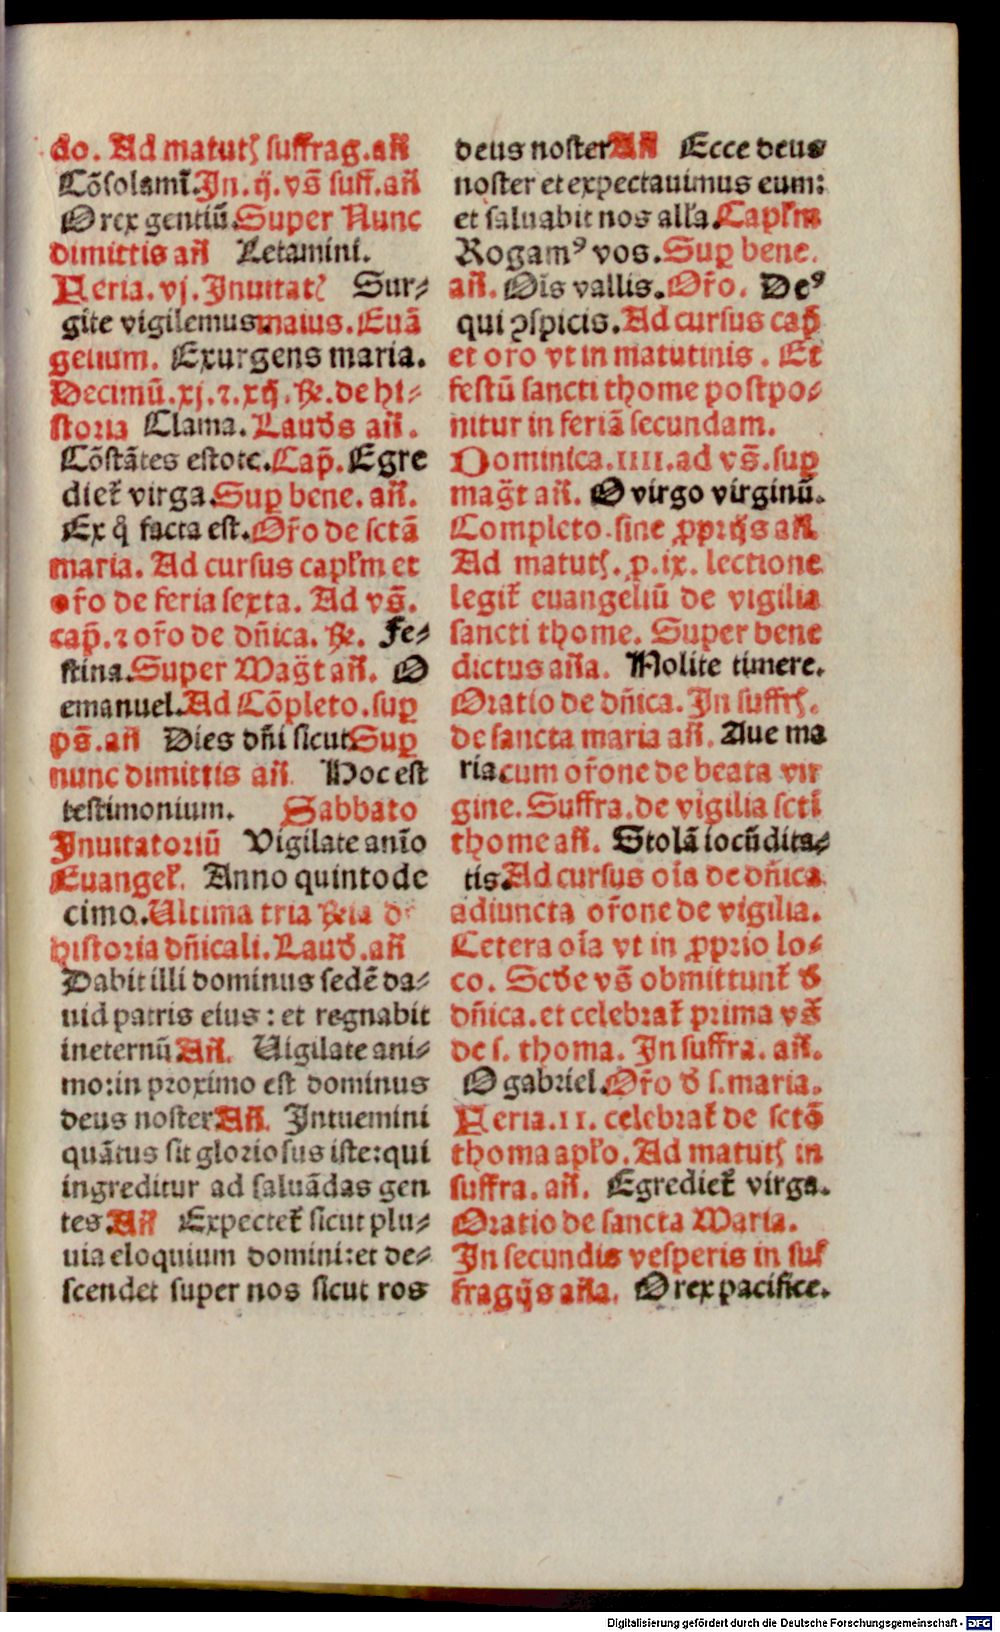 do. Ad matutꝭ suffrag. an̄
Cōsolamī. In. ij. vs̄ suff. an̄
O rex gentiū. Super Nunc
dimittis an̄ Letamini.
Feria. vj. Inuitatꝭ Sur⸗
gite vigilemus maius. Euā
gelium. Exurgens maria.
Decimū. xj. ⁊. xij. ℟. de hi⸗
storia Clama. Laudꝭs an̄.
Cōstātes estote. Cap̄. Egre
diet᷑ virga. Suꝑ bene. an̄.
Ex qͦ facta est. Or̄o de sctā
maria. Ad cursus capl̄m et
or̄o de feria sexta. Ad vs̄.
cap̄. ⁊ or̄o de dn̄ica. ℟. Fe⸗
stina. Super Mag̃t an̄. O
emanuel. Ad Cōpleto. suꝑ
ps̄. an̄ Dies dn̄i sicut Suꝑ
nunc dimittis an̄. Hoc est
testimonium. Sabbato
Inuitatoriū Vigilate anīo
Euangel̄. Anno quintode
cimo. Ultima tria ℟ia de
historia dn̄icali. Laud̄. an̄
Dabit illi dominus sedē da⸗
uid patris eius : et regnabit
ineternū An̄. Uigilate ani⸗
mo: in proximo est dominus
deus noster An̄. Intuemini
quātus sit gloriosus iste: qui
ingreditur ad saluādas gen
tes. An̄ Expectet᷑ sicut plu⸗
uia eloquium domini: et de⸗
scendet super nos sicut ros
deus noster An̄ Ecce deus
noster et expectauimus eum:
et saluabit nos all̄a. Capl̄m
Rogamꝰ vos. Suꝑ bene.
an̄. Oīs vallis. Or̄o. Deꝰ
qui ꝯspicis. Ad cursus cap̄
et or̄o vt in matutinis . Et
festū sancti thome postpo⸗
nitur in feriā secundam.
Dominica. IIII. ad vs̄. suꝑ
mag̃t an̄. O virgo virginū.
Completo. sine ꝓprijs an̄.
Ad matutꝭ. ꝑ. ix. lectione
legit᷑ euangeliū de vigilia
sancti thome. Super bene
dictus an̄a. Nolite timere.
Oratio de dn̄ica. In suffrꝭ.
de sancta maria an̄. Aue ma
ria. cum or̄one de beata vir
gine. Suffra. de vigilia sctī
thome an̄. Stolā iocūdita⸗
tis. Ad cursus oīa de dn̄ica
adiuncta or̄one de vigilia.
Cetera oīa vt in ꝓprio lo⸗
co. Scd̄e vs̄ obmittunt᷑ d̄
dn̄ica. et celebrat᷑ prima vs̄
de s. thoma. In suffra. an̄.
O gabriel. Or̄o d̄ s. maria.
Feria. II. celebrat᷑ de sctō
thoma apl̄o. Ad matutꝭ in
suffra. an̄. Egrediet᷑ virga.
Oratio de sancta Maria.
In secundis vesperis in suf
fragijs an̄a. O rex pacifice.
Digitalisierung gefördert durch die Deutsche Forschungsgemeinschaft - DFG